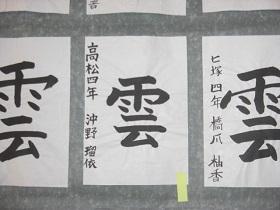 雲
高松四年 沖野 瑠依
雲
ヒ塚 四年 橋爪 柚香
雲